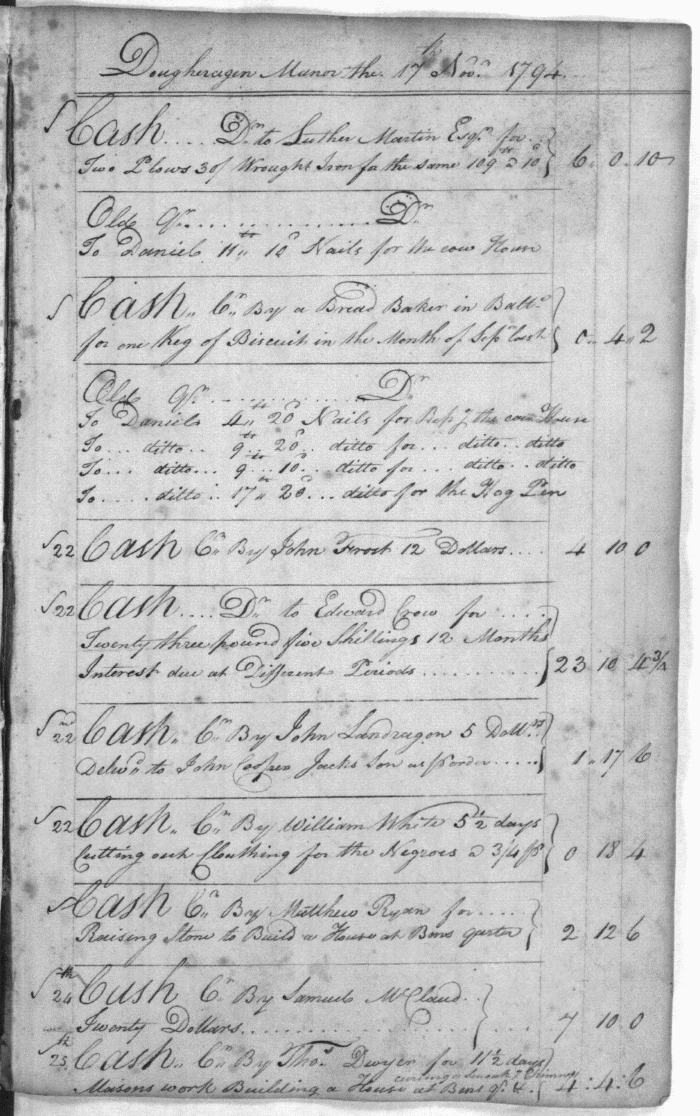 Dougheragen Manor the 17th Novr 1794
∫ Cash .... Dr to Luther Martin Esqr for..
Two Plows 3 of Wrought Iron for the same 109 lb @ 10d } 6 . 0 . 10
Old Qr .................. Dr
To Daniel 11 lb 10d Nails for the cow House
∫ Cash " Cr By a Bread Baker in Balto
for one Keg of Biscuit in the Month of Sepr last } 0 " 4 " 2
Old Qr ............... Dr
To Daniel 4 lb 20d Nails for Rep g the cow House
To ... ditto .. 9 lb 20d .. ditto for ... ditto .. ditto
To ... ditto ... 9 lb 10d ... ditto for ... ditto .. ditto
To .... ditto .. 17 lb 20d ... ditto for the Hog Pen
∫ 22 Cash Cr By John Frost 12 Dollars .... 4 10 0
∫ 22 Cash .... Dr to Edward Crow for ....
Twenty three pound five Shillings 12 Months
Interest due at Different Periods .......... } 23 10 4 3/4
∫ 22nd Cash " Cr By John Landragon 5 Dollrs
Deliv'd to John Cooper Jacks Son as pr order ..... } 1 " 17 6
∫ 22 Cash " Cr By William White 5 1/2 days
Cutting out Cloathing for the Negroes @ 3/4 pr } 0 18 4
∫ Cash Cr By Matthew Ryan for ....
Raising Stone to Build a House at Bens quarter } 2 12 6
∫ 24th Cash Cr By Samuel McClaud ..
Twenty Dollars .................. } 7 10 0
∫ 25th Cash " Cr By Thos Dwyer for 11 1/2 days
curing a Smoak g Chimney
Masons work Building a House at Bens qr &. } 4 : 4 : 6